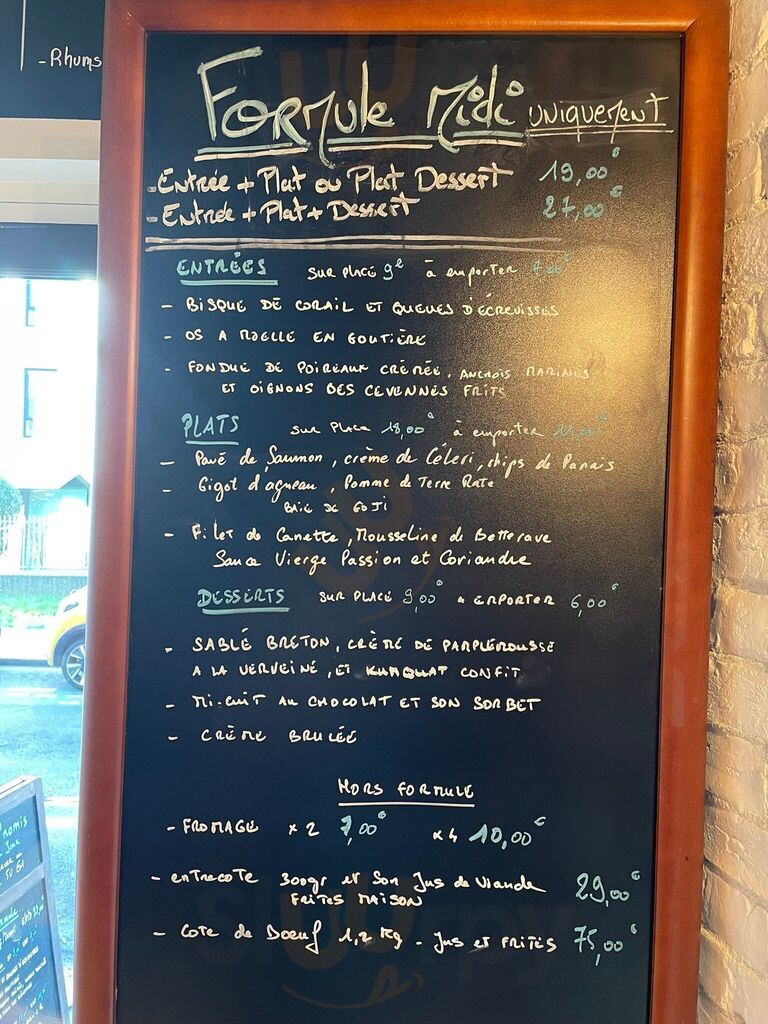 - Rhums
Formule Midi uniquement
- Entrée + Plat ou Plat Dessert 19,00€
- Entrée + Plat + Dessert 27,00€
ENTRÉES sur place 9€ à emporter 7,00€
- BISQUE DE CORAIL ET QUEUES D'ÉCREVISSES
- OS A MOELLE EN GOUTIÈRE
- FONDUE DE POIREAUX CRÉMÉE, ANCHOIS MARINÉS
ET OIGNONS DES CEVENNES FRITS
PLATS sur place 18,00€ à emporter
- Pavé de Saumon, crème de Céleri, chips de Panais
- Gigot d'agneau, Pomme de Terre Rate
BAIE DE GOJI
- Filet de Canette, Mousseline de Betterave
Sauce Vierge Passion et Coriandre
DESSERTS SUR PLACE 9,00€ A EMPORTER 6,00€
- SABLÉ BRETON, CRÈME DE PAMPLEMOUSSE
A LA VERVEINE, ET KUMQUAT CONFIT
- MI-CUIT AU CHOCOLAT ET SON SORBET
- CRÈME BRULÉE
HORS FORMULE
- FROMAGE x2 7,00€ x4 10,00€
- entrecote 300gr et Son Jus de Viande 29,00€
FRITES MAISON
- Cote de Boeuf 1,2 Kg - Jus et FRITES 75,00€